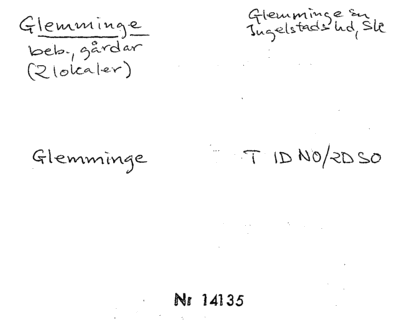 Glemminge
beb., gårdar
(2 lokaler)
Glemminge sn
Ingelstads hd, Sk
Glemminge T 1D NO/2D SO
Nr 14135